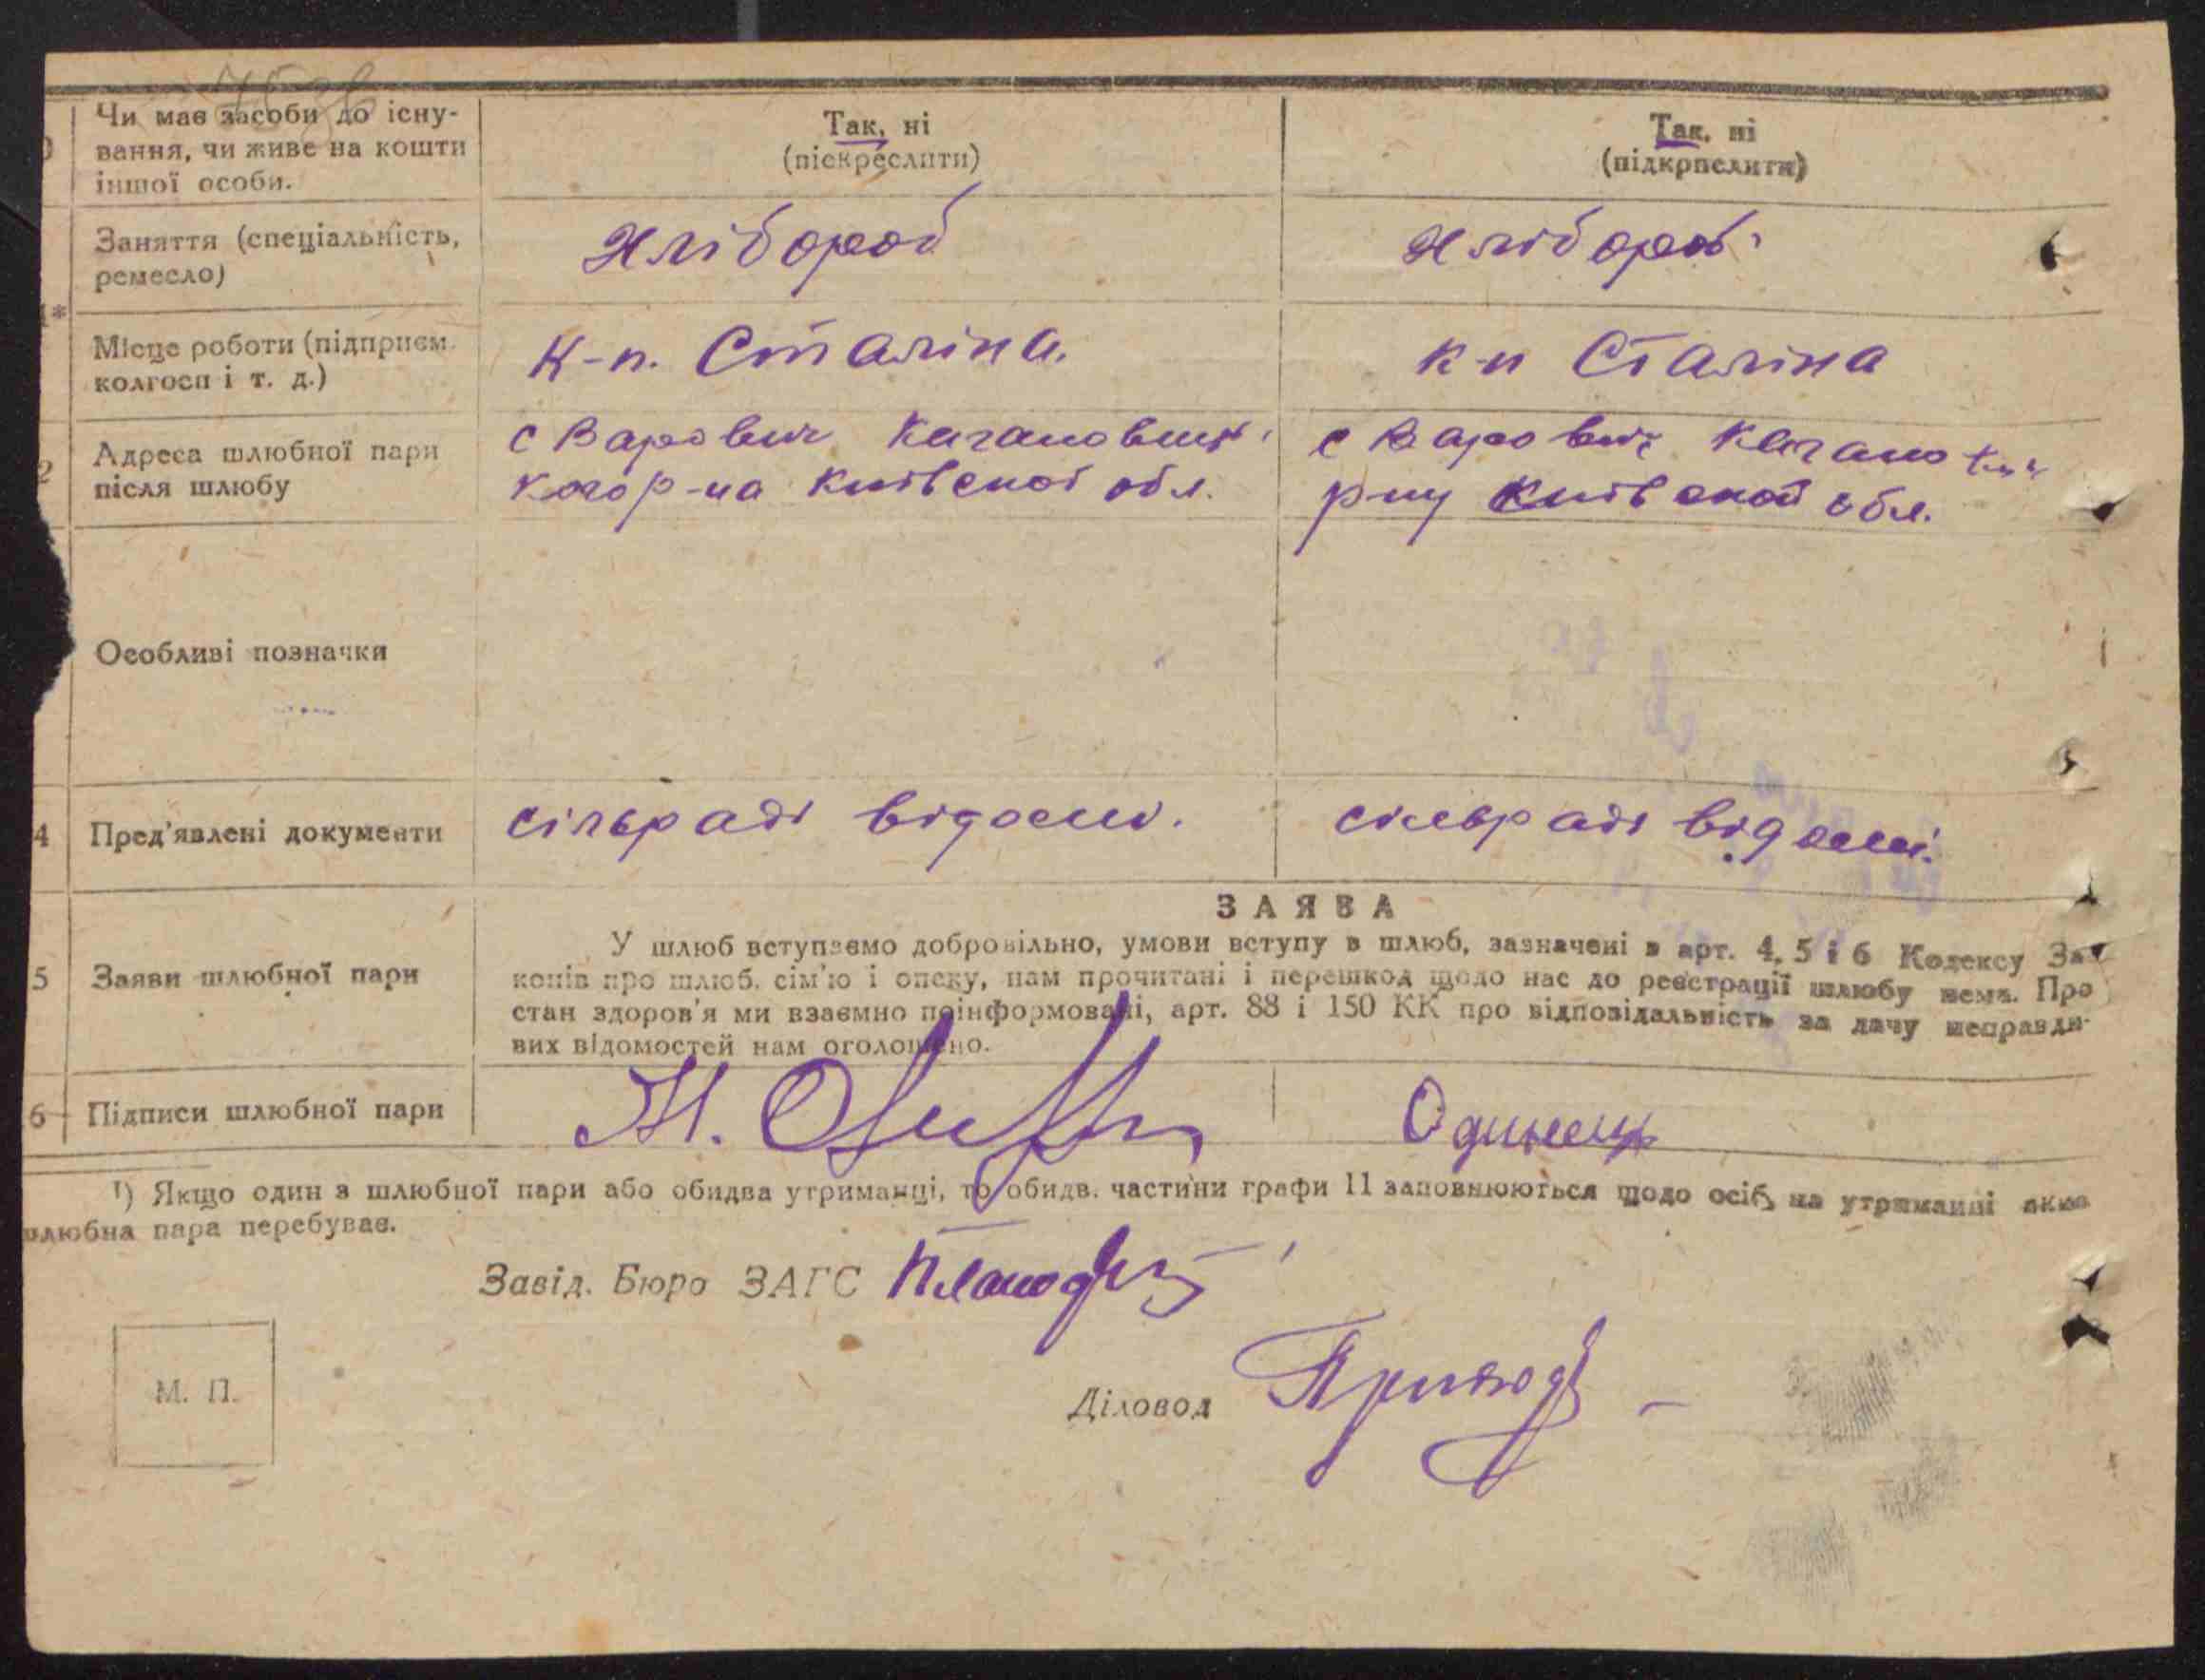 Чи має засоби до існу-
вання, чи живе на кошти
іншої особи.
Так, ні
(піскреслити)
Так, ні
(підкрпслити)
Заняття (спеціальність,
ремесло)
Хлібороб
Хлібороб
1*
Місце роботи (підприєм.
колгосп і т. д.)
К-п. Сталіна.
к-п Сталіна
2
Адреса шлюбної пари
після шлюбу
с Варовичі Кагановицьк
кого р-на Київської обл.
с Варовичі Кагано
р-ну Київської обл.
Особливі позначки
4
Пред'явлені документи
сільраді відомі.
сільраді відомі.
5
Заяви шлюбної пари
ЗАЯВА
У шлюб вступаємо добровільно, умови вступу в шлюб, зазначені в арт. 4, 5 і 6 Кодексу За-
конів про шлюб, сім'ю і опеку, нам прочитані і перешкод щодо нас до реєстрації шлюбу нема. Про
стан здоров'я ми взаємно поінформовані, арт. 88 і 150 КК про відповідальність за дачу неправди-
вих відомостей нам оголошено.
6
Підписи шлюбної пари
Одинець
¹) Якщо один з шлюбної пари або обидва утриманці, то обидв. частини графи 11 заповнюються щодо осіб, на утриманні яких
шлюбна пара перебуває.
Завід. Бюро ЗАГС
М. П.
Діловод